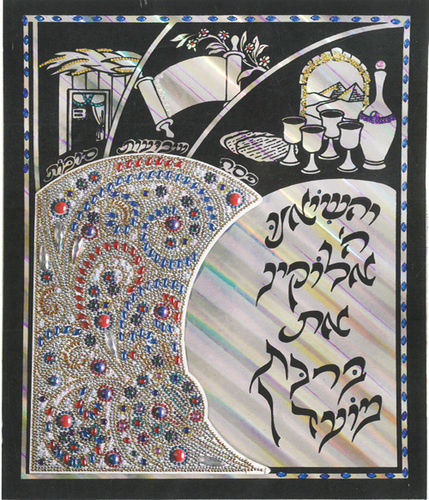 פסח שבועות סוכות
והשיאנו
ה'
אלוקינו
את
ברכת
מועדיך